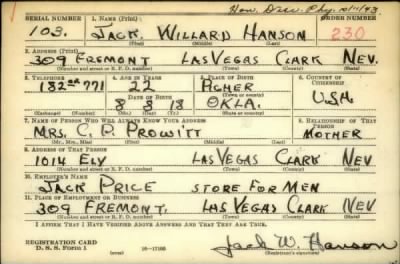 Hon. Disc. Phy. 10/11/43
SERIAL NUMBER 1. NAME (Print) ORDER NUMBER
103. JACK WILLARD HANSON 230
(First) (Middle) (Last)
2. ADDRESS (Print)
309 FREMONT LAS VEGAS CLARK NEV.
(Number and street or R. F. D. number) (Town) (County) (State)
3. TELEPHONE 4. AGE IN YEARS 5. PLACE OF BIRTH 6. COUNTRY OF CITIZENSHIP
22 PICHER
(Town or county)
DATE OF BIRTH
771 8 8 18 OKLA. U.S.A.
(Exchange) (No.) (Mo.) (Day) (Yr.) (State or country)
7. NAME OF PERSON WHO WILL ALWAYS KNOW YOUR ADDRESS 8. RELATIONSHIP OF THAT PERSON
MRS. C. P. PROWITT MOTHER
(Mr., Mrs., Miss) (First) (Middle) (Last)
9. ADDRESS OF THAT PERSON
1014 ELY LAS VEGAS CLARK NEV
(Number and street or R. F. D. number) (Town) (County) (State)
10. EMPLOYER'S NAME
JACK PRICE STORE FOR MEN
11. PLACE OF EMPLOYMENT OR BUSINESS
309 FREMONT. LAS VEGAS CLARK NEV
(Number and street or R. F. D. number) (Town) (County) (State)
I AFFIRM THAT I HAVE VERIFIED ABOVE ANSWERS AND THAT THEY ARE TRUE.
REGISTRATION CARD
D. S. S. FORM 1 16-17105 Jack W. Hanson
(Registrant's signature)